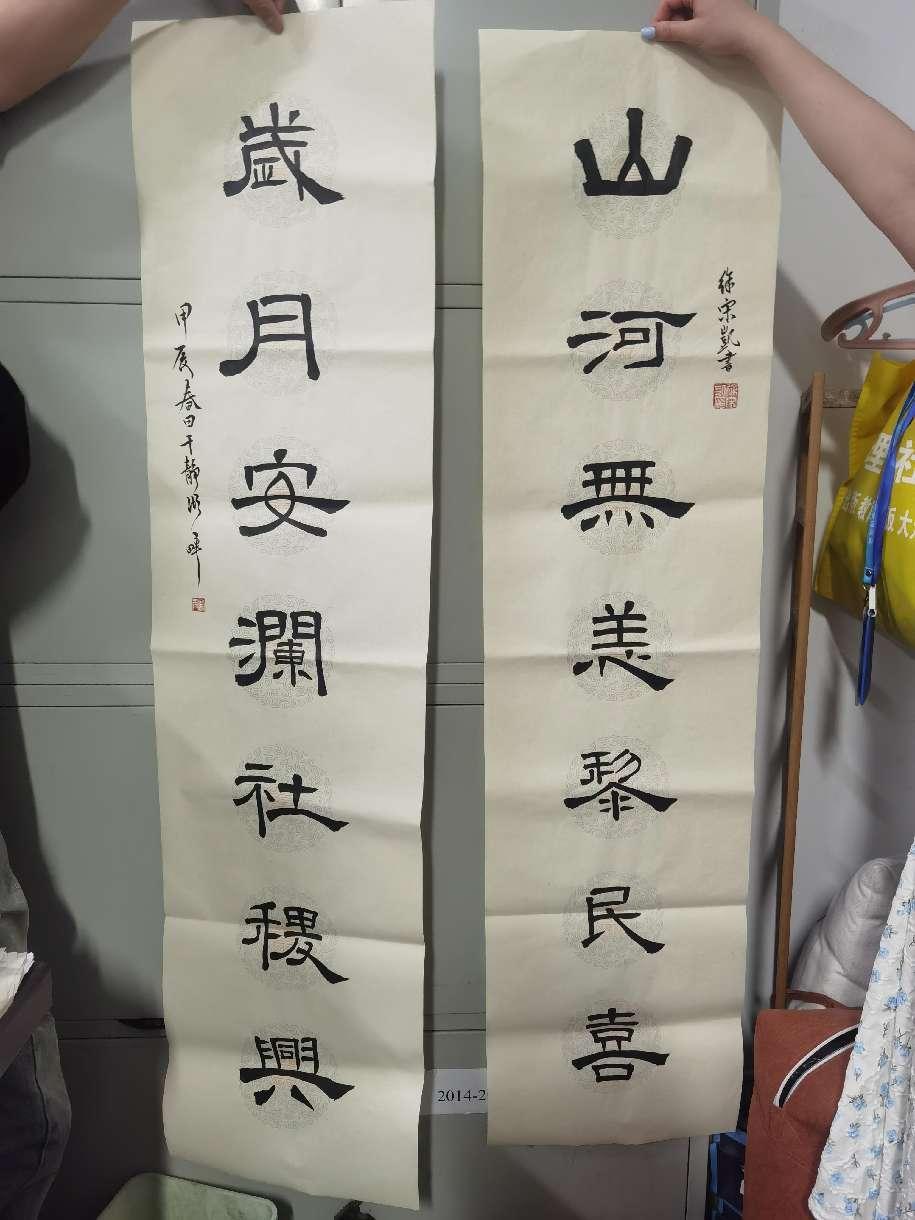 山河無恙黎民喜
徐宗凱書
歲月安瀾社稷興
甲辰春日于靜湖畔
2014-2